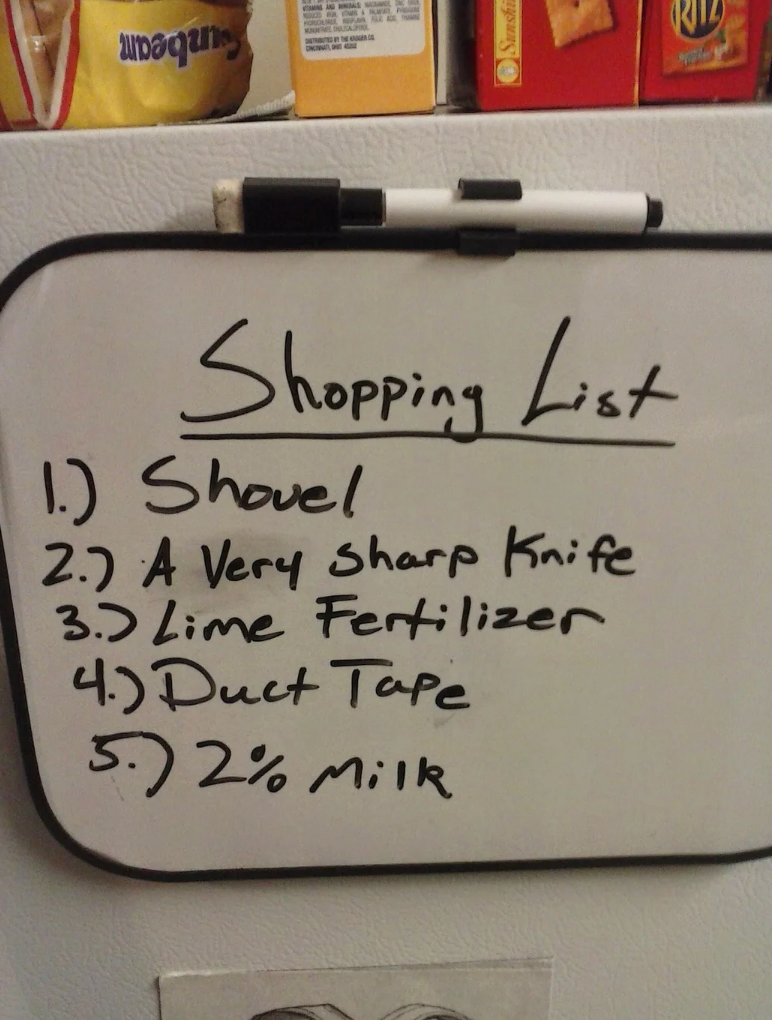 unbeam
VITAMINS AND MINERALS:
DISTRIBUTED BY THE KROGER CO.
CINCINNATI, OHIO 45202
Sunshi
RITZ
Shopping List
1.) Shovel
2.) A Very Sharp Knife
3.) Lime Fertilizer
4.) Duct Tape
5.) 2% Milk